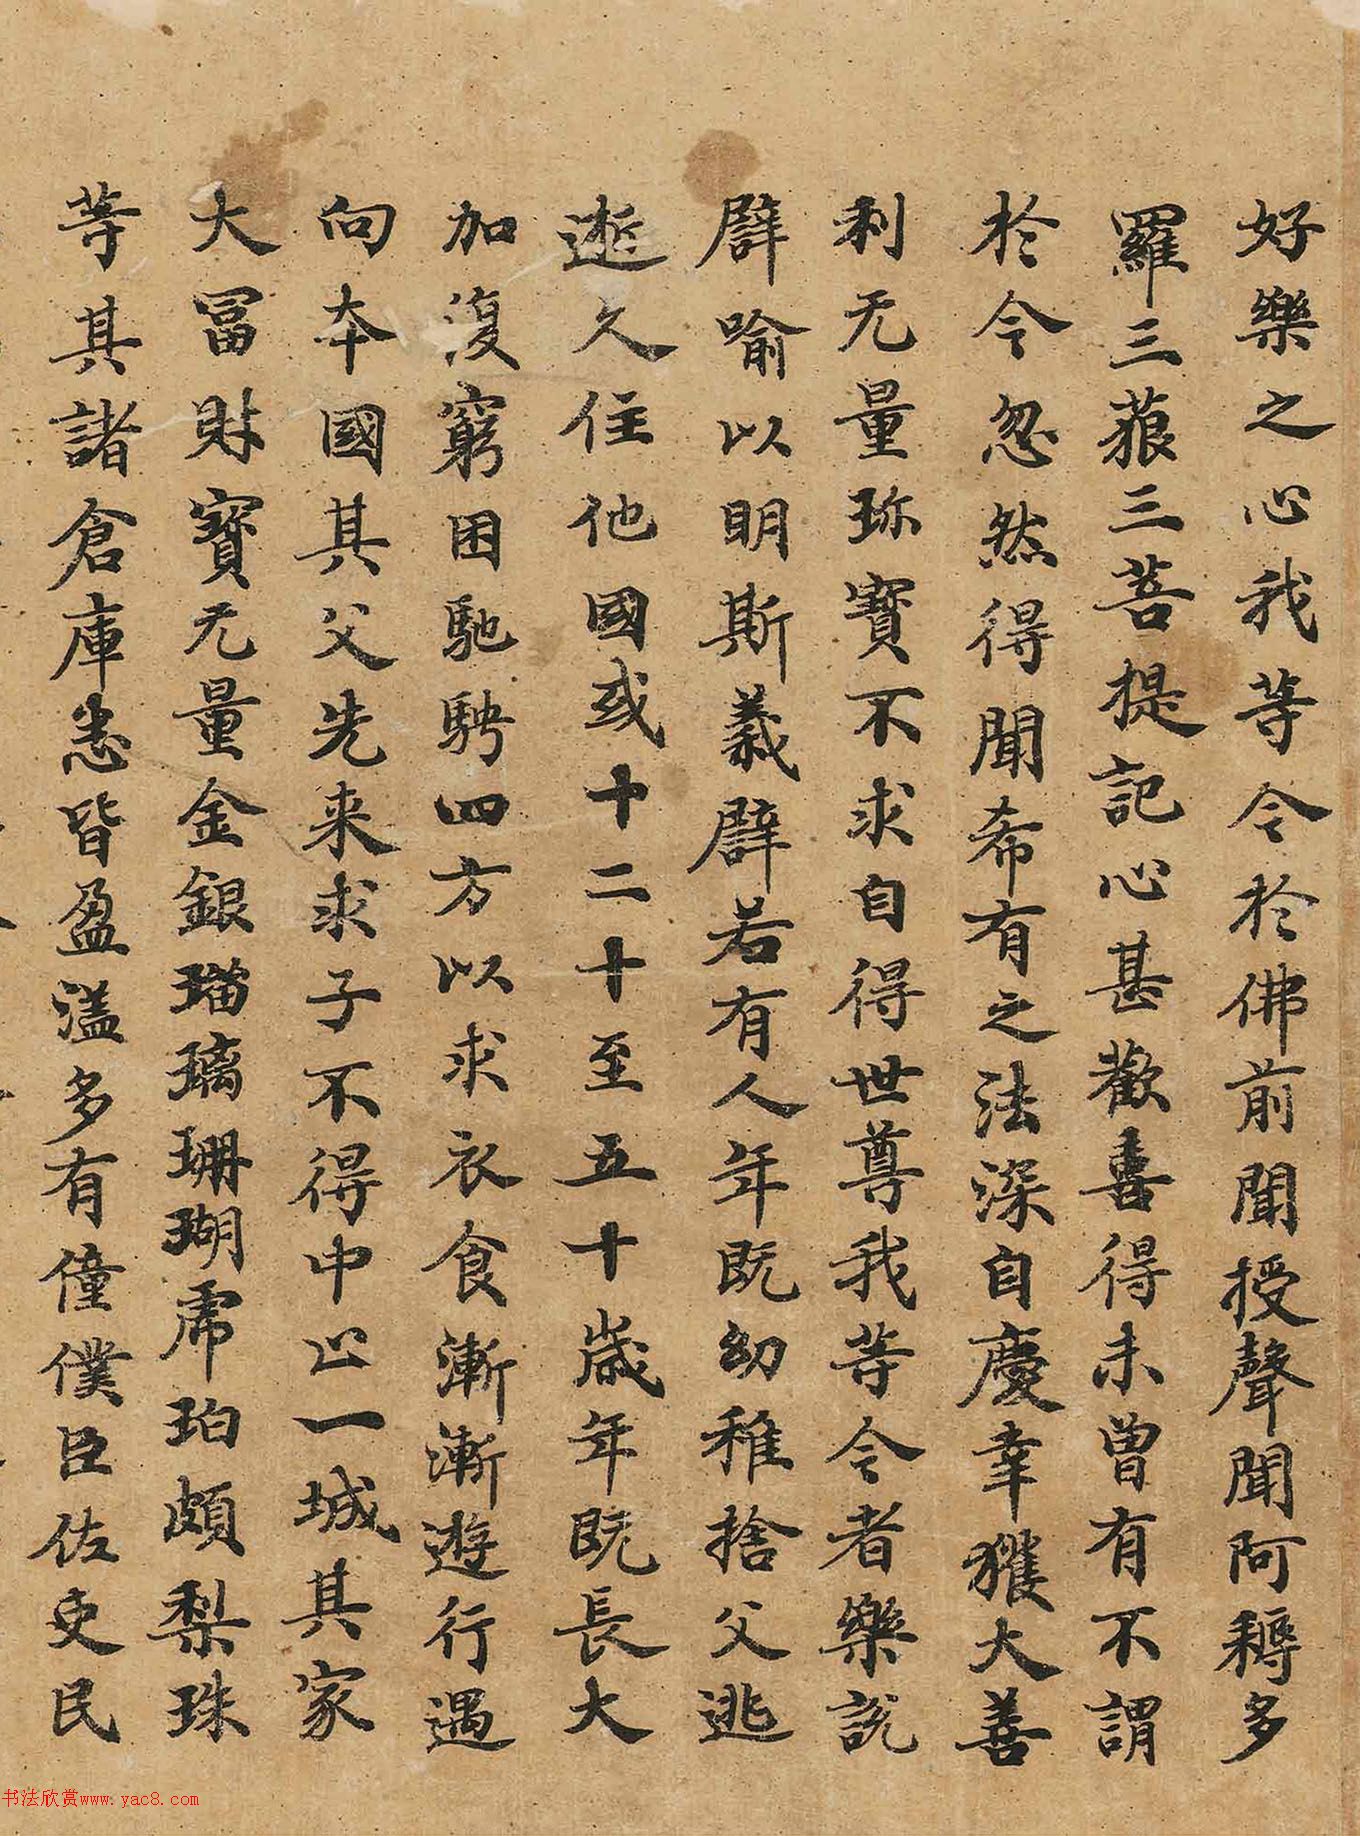 好樂之心我等今於佛前聞授聲聞阿耨多
羅三藐三菩提記心甚歡喜得未曾有不謂
於今忽然得聞希有之法深自慶幸獲大善
利无量珎寶不求自得世尊我等今者樂說
譬喻以明斯義譬若有人年既幼稚捨父逃
逝久住他國或十二十至五十歲年既長大
加復窮困馳騁四方以求衣食漸漸遊行遇
向本國其父先来求子不得中止一城其家
大冨財寶无量金銀瑠璃珊瑚虎珀頗梨珠
等其諸倉庫悉皆盈溢多有僮僕臣佐吏民
书法欣赏www.yac8.com